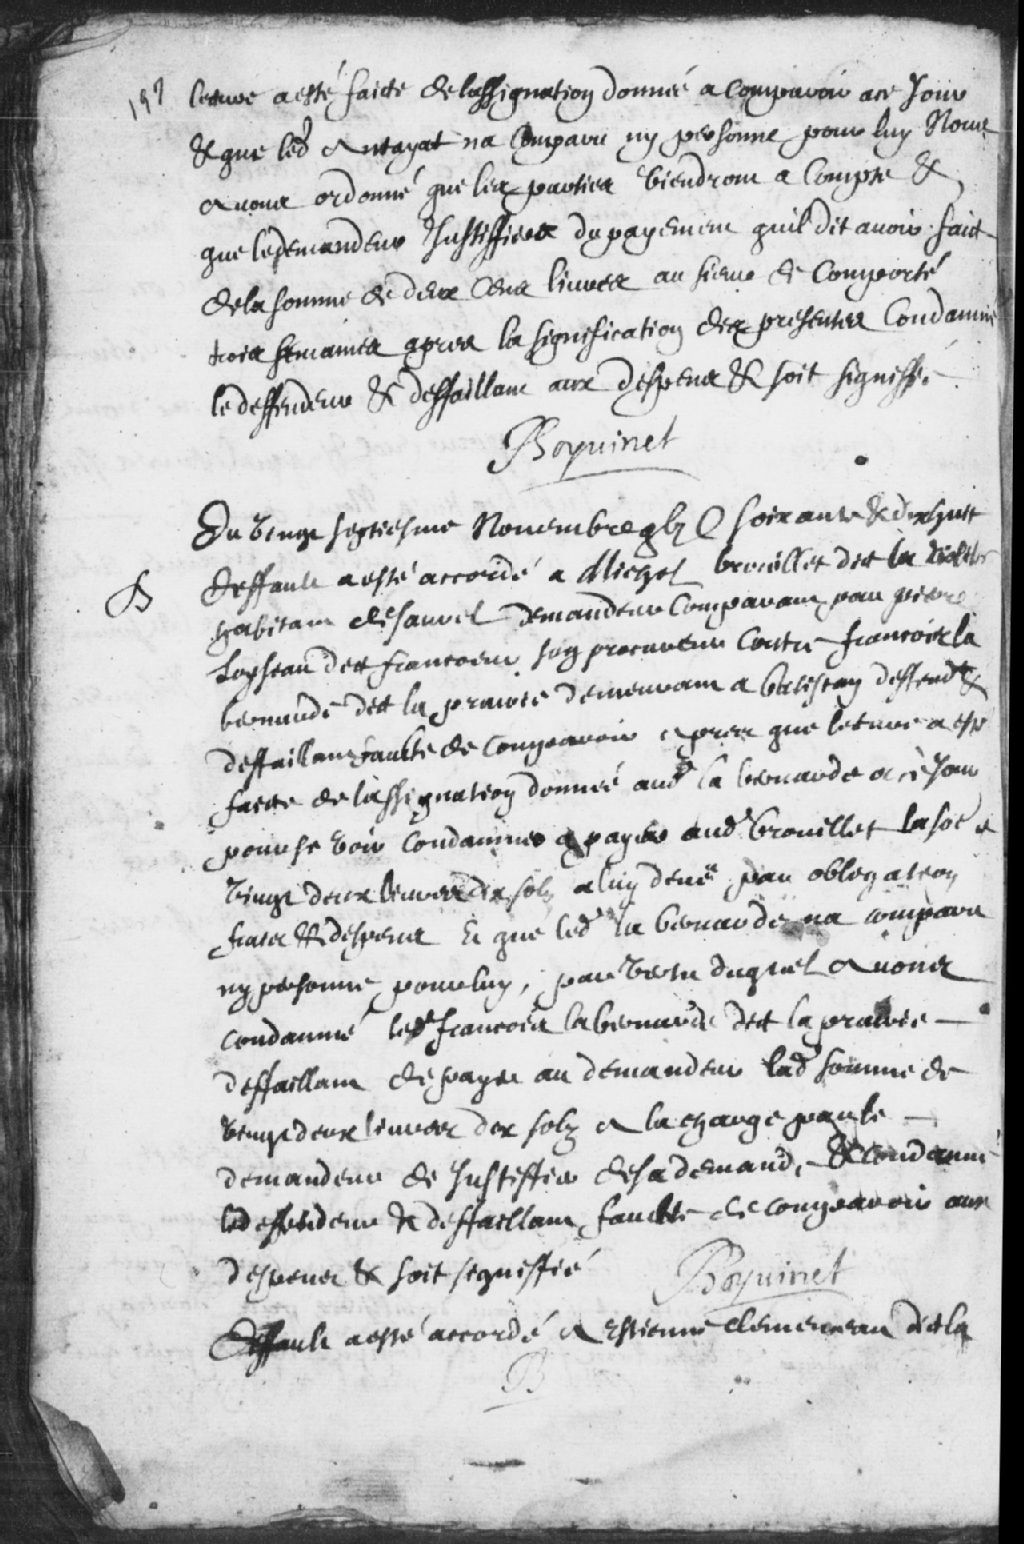 197
lecture a esté faicte de lassignation donnée a comparoir a ce Jour
& que led^t Antayat na comparu ny personne pour luy Nous
Avons ordonné que les parties viendront a Compte &
que le demandeur Justiffiera du payement quil dit avoir faict
de la somme de deux Cens livres au sieur de Comporté
trois semaines apres la signification des presentes Condamné
le deffendeur & deffaillant aux despens & soit signiffié
Boyvinet
Du vingt septiesme Novembre soixante & dix huit
B
Deffault a esté accordé a Michel brouillet dit la
habitant de saurel demandeur Comparant par pierre
Loyseau dit francoeur son procureur Contre francois la
bernarde dit la prairie demeurant a batiscan deffend^r &
deffaillant faulte de Comparoir apres que lecture a esté
faicte de lassignation donnée aud^t la bernarde a ce Jour
pour se voir condamner a payer aud^t brouillet la so^e de
vingt deux livres dix solz a luy deue par obligation
fraiz & despens Et que led^t la bernarde na comparu
ny personne pour luy, par vertu duquel Avons
condamné led^t francois la bernarde dit la prairie
deffaillant de payer au demandeur lad^e somme de
vingt deux livres dix solz a la charge par le
demandeur de Justiffier de sa demande & condamné
led^t deffendeur & deffaillant faulte de comparoir aux
despens & soit signiffié
Boyvinet
Deffault a esté accordé a Estienne Clemenceau dit la
B